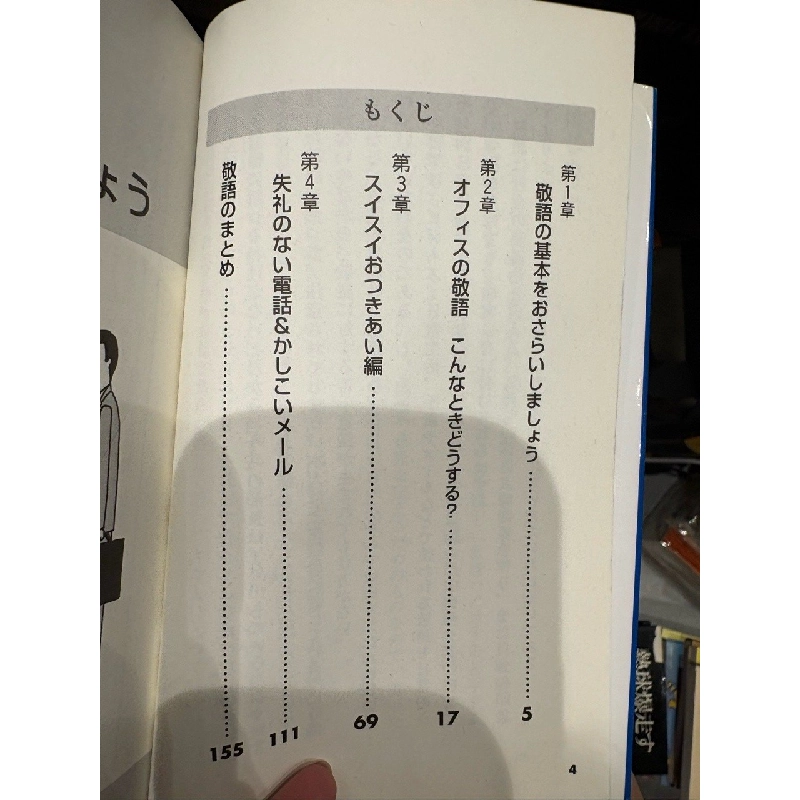 もくじ
第1章
敬語の基本をおさらいしましょう……………5
第2章
オフィスの敬語 こんなときどうする?……………17
第3章
スイスイおつきあい編……………69
第4章
失礼のない電話&かしこいメール……………111
敬語のまとめ……………155
4
ょう